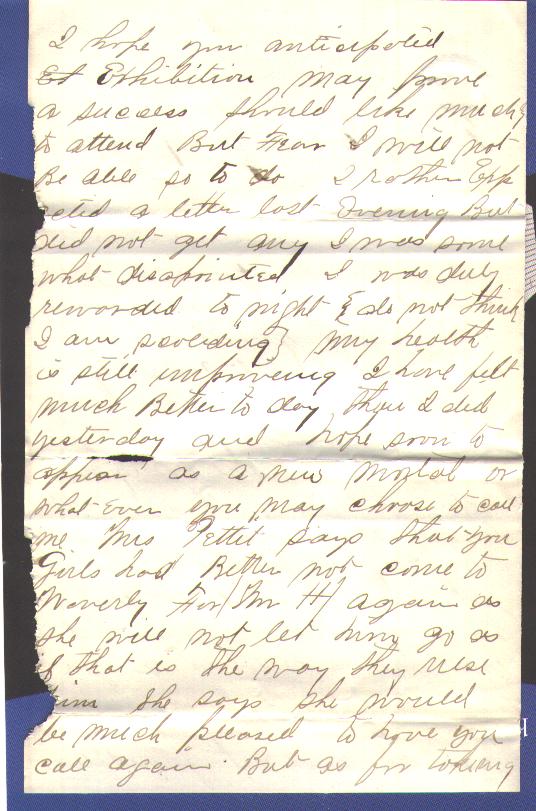 I hope you anticipated
Exhibition may prove
a success should like much
to attend But Fear I will not
Be able so to do I rather Exp
ected a letter last Evening But
did not get any I was some
what disapointed I was duly
rewarded to night & do not think
I am scolding } My health
is still improveing I have felt
much Better to day than I did
yesterday and hope soon to
appear as a new mortal or
what ever you may choose to call
me Mrs Pettit says that you
Girls had Better not come to
Waverly For (Mr H) again as
she will not let him go as
if that is the way they use
him She says she would
be much pleased to have you
call again. But as for